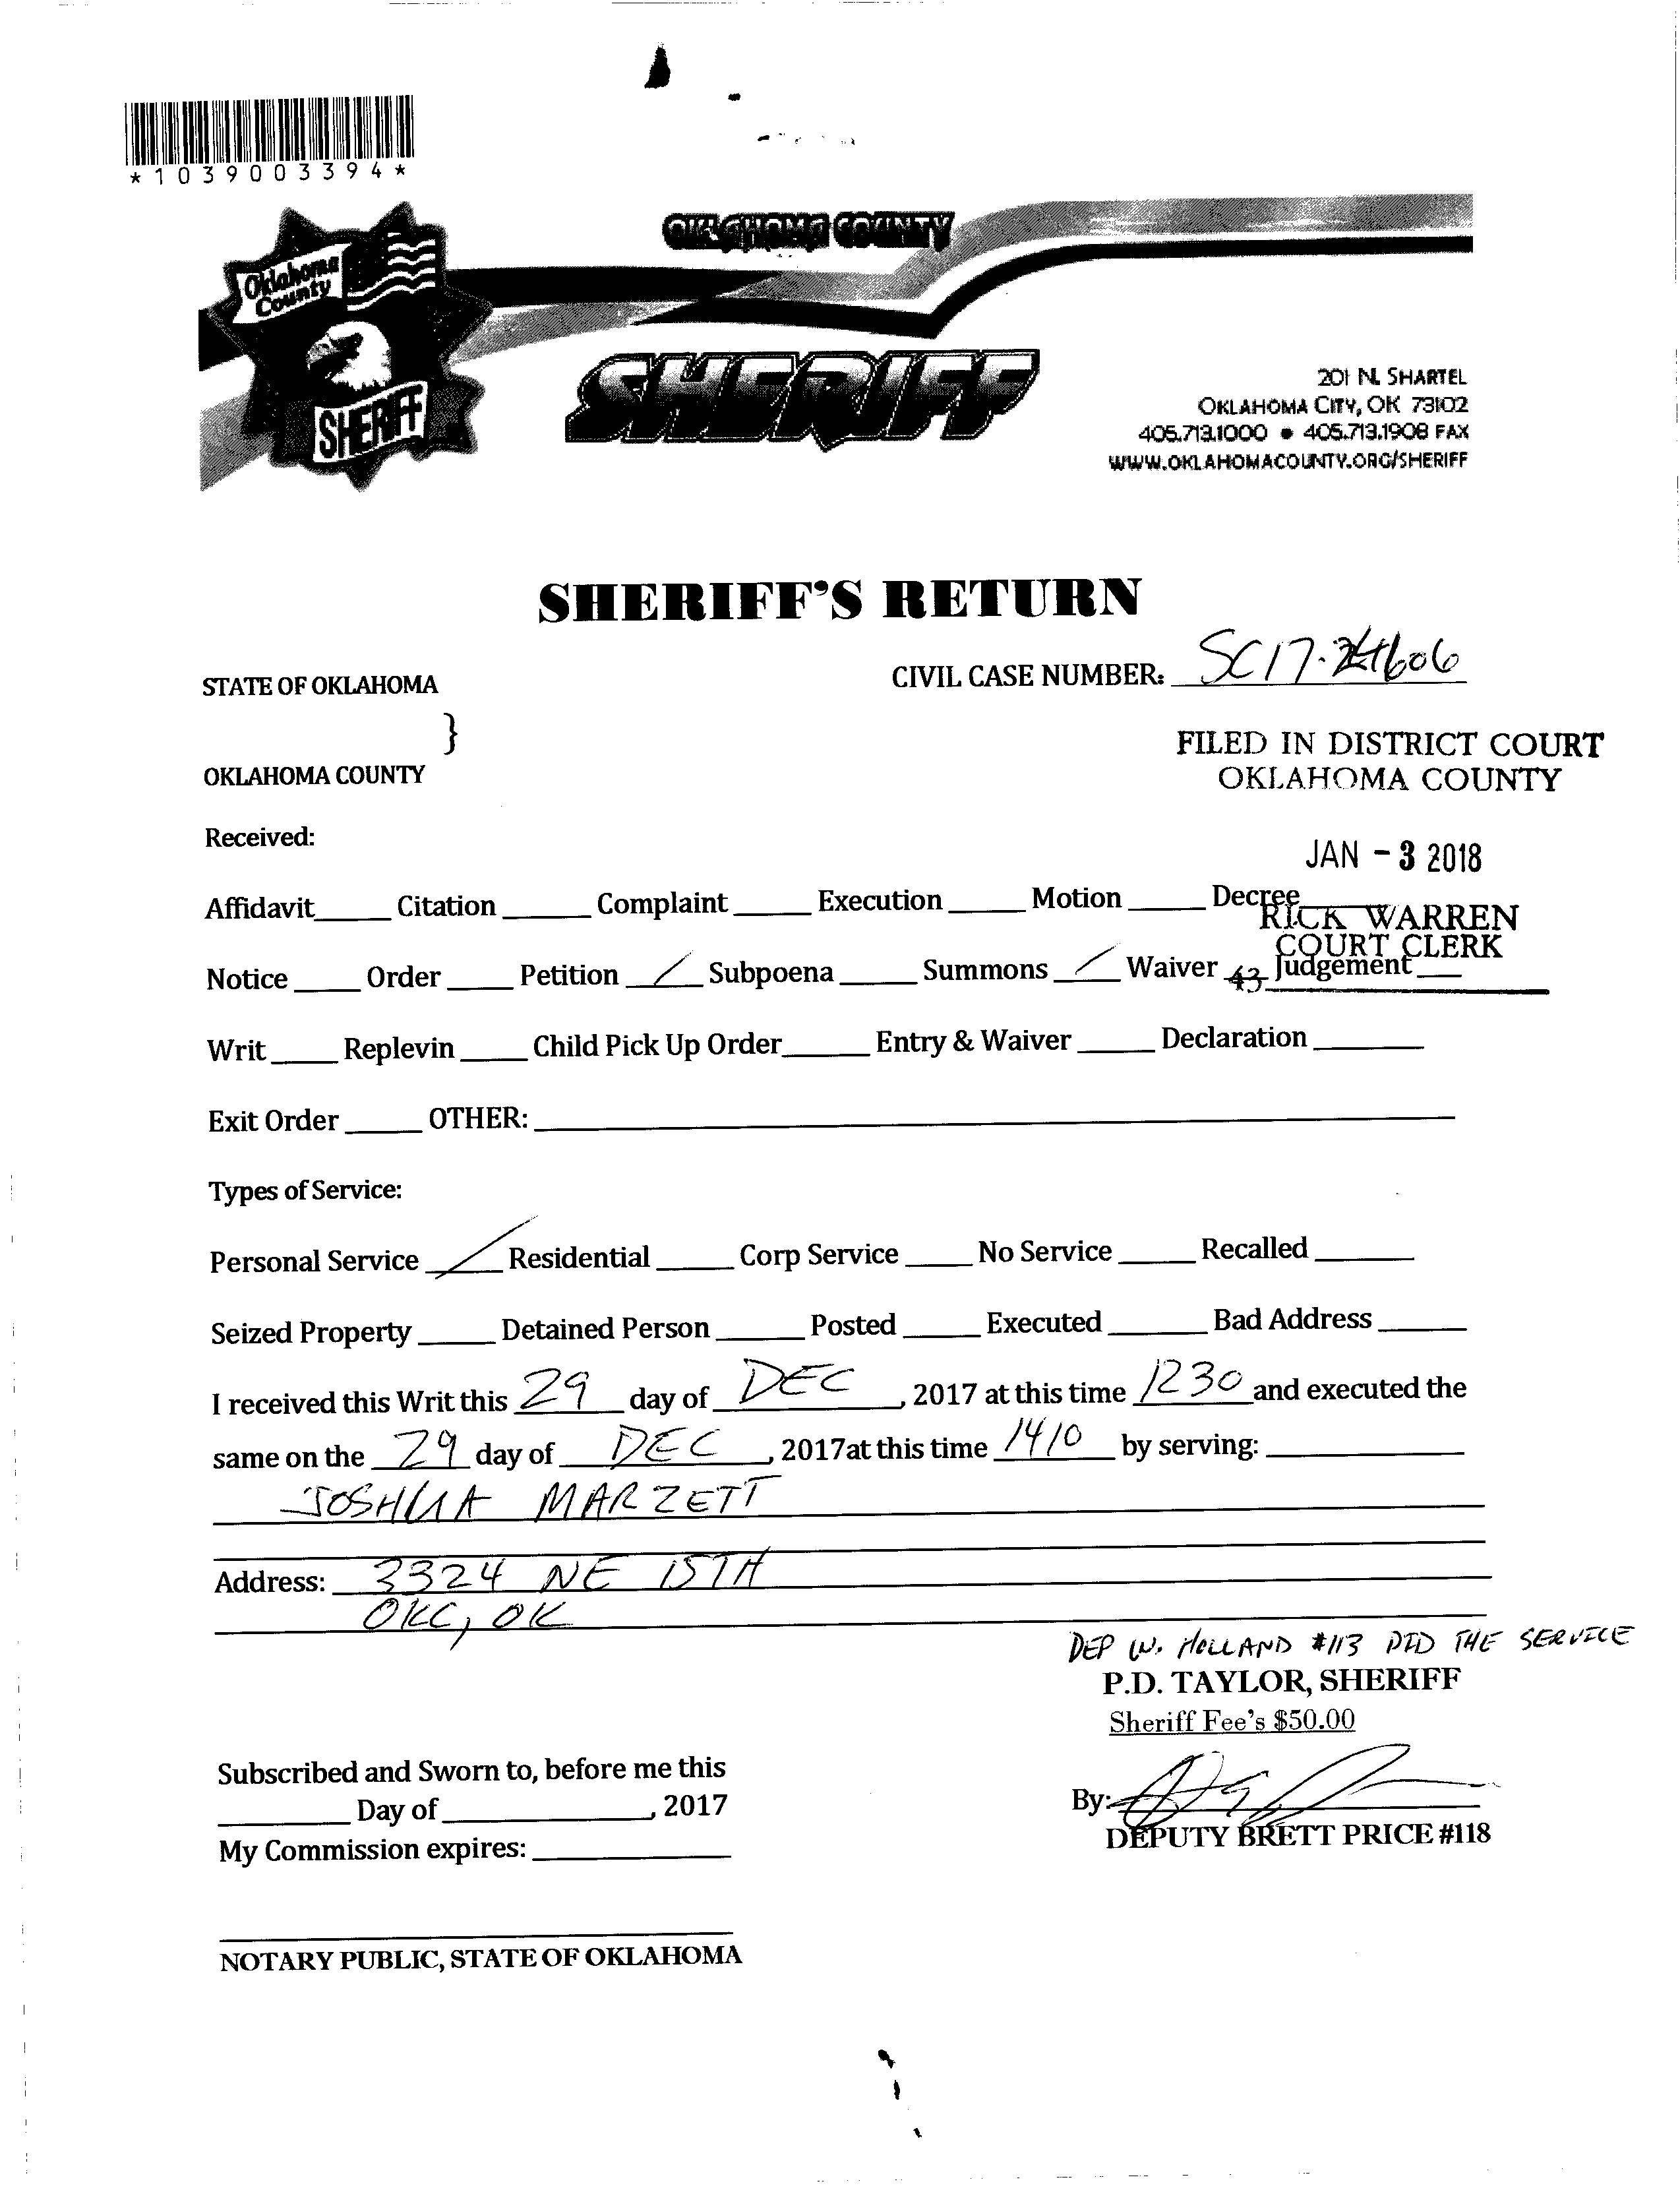 *1039003394*
OKLAHOMA COUNTY
Oklahoma
County
SHERIFF
SHERIFF
201 N. SHARTEL
OKLAHOMA CITY, OK 73102
405.713.1000 ● 405.713.1908 FAX
WWW.OKLAHOMACOUNTY.ORG/SHERIFF
SHERIFF'S RETURN
STATE OF OKLAHOMA
CIVIL CASE NUMBER: SC17-24606
}
OKLAHOMA COUNTY
FILED IN DISTRICT COURT
OKLAHOMA COUNTY
JAN - 3 2018
RICK WARREN
COURT CLERK
43
Received:
Affidavit_____ Citation _____ Complaint _____ Execution _____ Motion _____ Decree_____
Notice _____ Order _____ Petition __/__ Subpoena _____ Summons __/__ Waiver ___ Judgement ___
Writ _____ Replevin _____ Child Pick Up Order_____ Entry & Waiver _____ Declaration _____
Exit Order _____ OTHER: _____
Types of Service:
Personal Service __/__ Residential _____ Corp Service _____ No Service _____ Recalled _____
Seized Property _____ Detained Person _____ Posted _____ Executed _____ Bad Address _____
I received this Writ this 29 day of DEC, 2017 at this time 1230 and executed the
same on the 29 day of DEC, 2017at this time 1410 by serving: _____
JOSHUA MARZETT
Address: 3324 NE 15TH
OKC, OK
DEP W. HOLLAND #113 DID THE SERVICE
P.D. TAYLOR, SHERIFF
Sheriff Fee's $50.00
Subscribed and Sworn to, before me this
_____ Day of _____, 2017
My Commission expires: _____
By:
DEPUTY BRETT PRICE #118
NOTARY PUBLIC, STATE OF OKLAHOMA